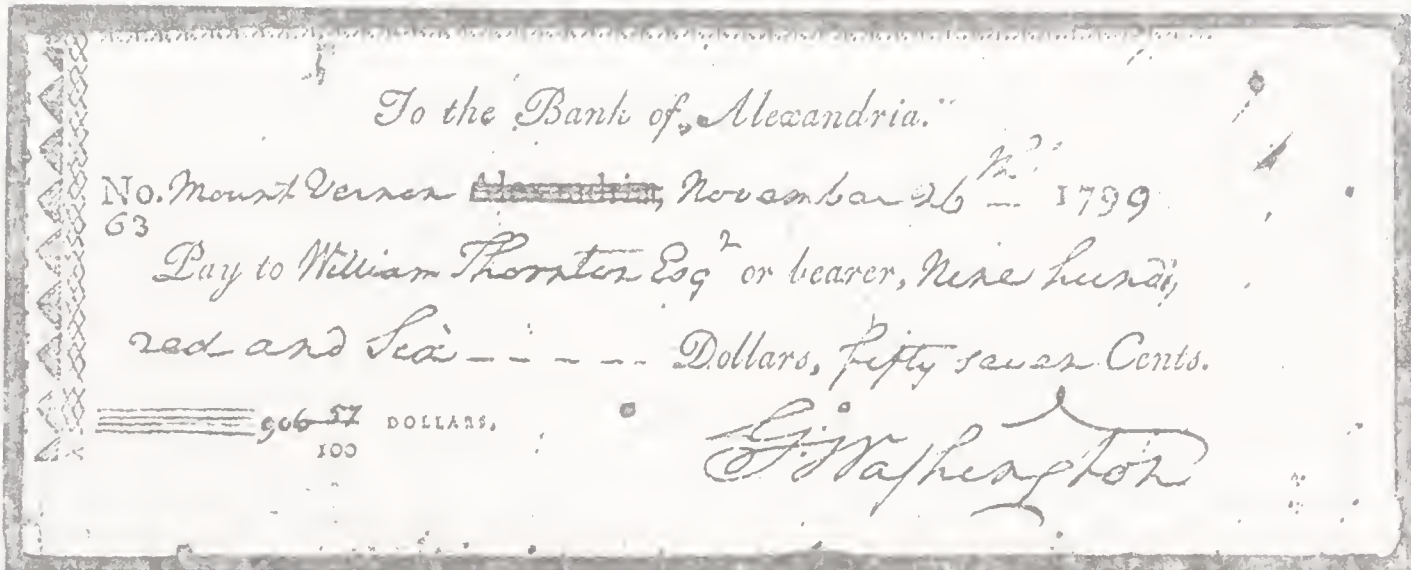 To the Bank of Alexandria.
No. Mount Vernon Alexandria, November 26th 1799
63
Pay to William Thornton Esqr or bearer, Nine hund,
red and Six ----- Dollars, fifty seven Cents.
906 57/100 DOLLARS.
G:Washington